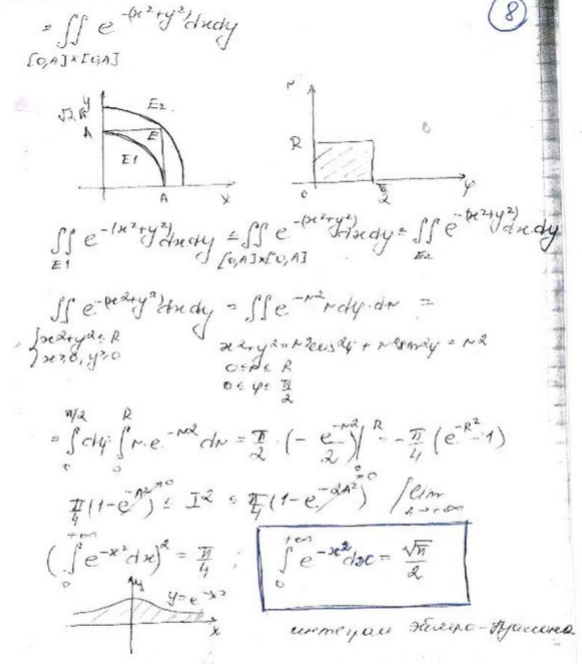 8
= ∬ e^{-(x²+y²)} dxdy
[0,A]×[0,A]
y E2
A E
E1
A x
r
R
0 π/2 φ
∬ e^{-(x²+y²)} dxdy ≤ ∬ e^{-(x²+y²)} dxdy ≤ ∬ e^{-(x²+y²)} dxdy
E1 [0,A]×[0,A] E2
∬ e^{-(x²+y²)} dxdy = ∬ e^{-r²} r dφ·dr =
{x²+y² ≤ R x²+y² = r²cos²φ + r²sin²φ = r²
{x≥0, y≥0 0≤r≤R
0≤φ≤π/2
= ∫₀^{π/2} dφ ∫₀^{R} r·e^{-r²} dr = π/2 · (- e^{-r²}/2)|₀^{R} = -π/4 (e^{-R²}-1)
π/4 (1-e^{-A²}) ≤ I² ≤ π/4 (1-e^{-2A²}) / lim A→+∞
(∫₀^{+∞} e^{-x²} dx)² = π/4 ; ∫₀^{+∞} e^{-x²} dx = √π/2
y y=e^{-x²}
x
интеграл Эйлера-Пуассона